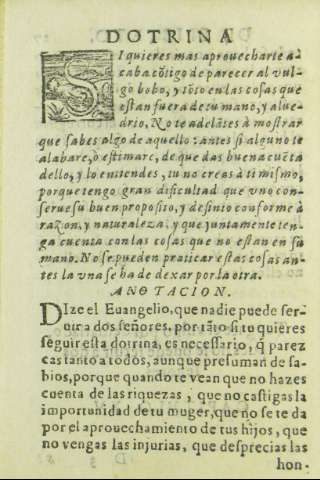 DOTRINA
SI quieres mas aprouecharte a-
caba cõtigo de parecer al vul-
go bobo, y tõto en las cosas que
estan fuera de tu mano, y alue-
drio. No te adelãtes à mostrar
que sabes algo de aquello: antes si alguno te
alabare, ò estimare, de que das buena cuẽta
dello, y lo entiendes, tu no creas à ti mismo,
porque tengo gran dificultad que vno con-
serue su buen proposito, y desinio conforme à
razon, y naturaleza, y que juntamente ten-
ga cuenta con las cosas que no estan en su
mano. No se pueden praticar estas cosas an-
tes la vna se ha de dexar por la otra.
ANOTACION.
DIze el Euangelio, que nadie puede ser-
uir a dos señores, por tãto si tu quieres
seguir esta dotrina, es necessario, q̃ parez
cas tanto a todos, aunque presuman de sa-
bios, porque quando te vean que no hazes
cuenta de las riquezas, que no castigas la
importunidad de tu muger, que no se te da
por el aprouechamiento de tus hijos, que
no vengas las injurias, que desprecias las
hon-